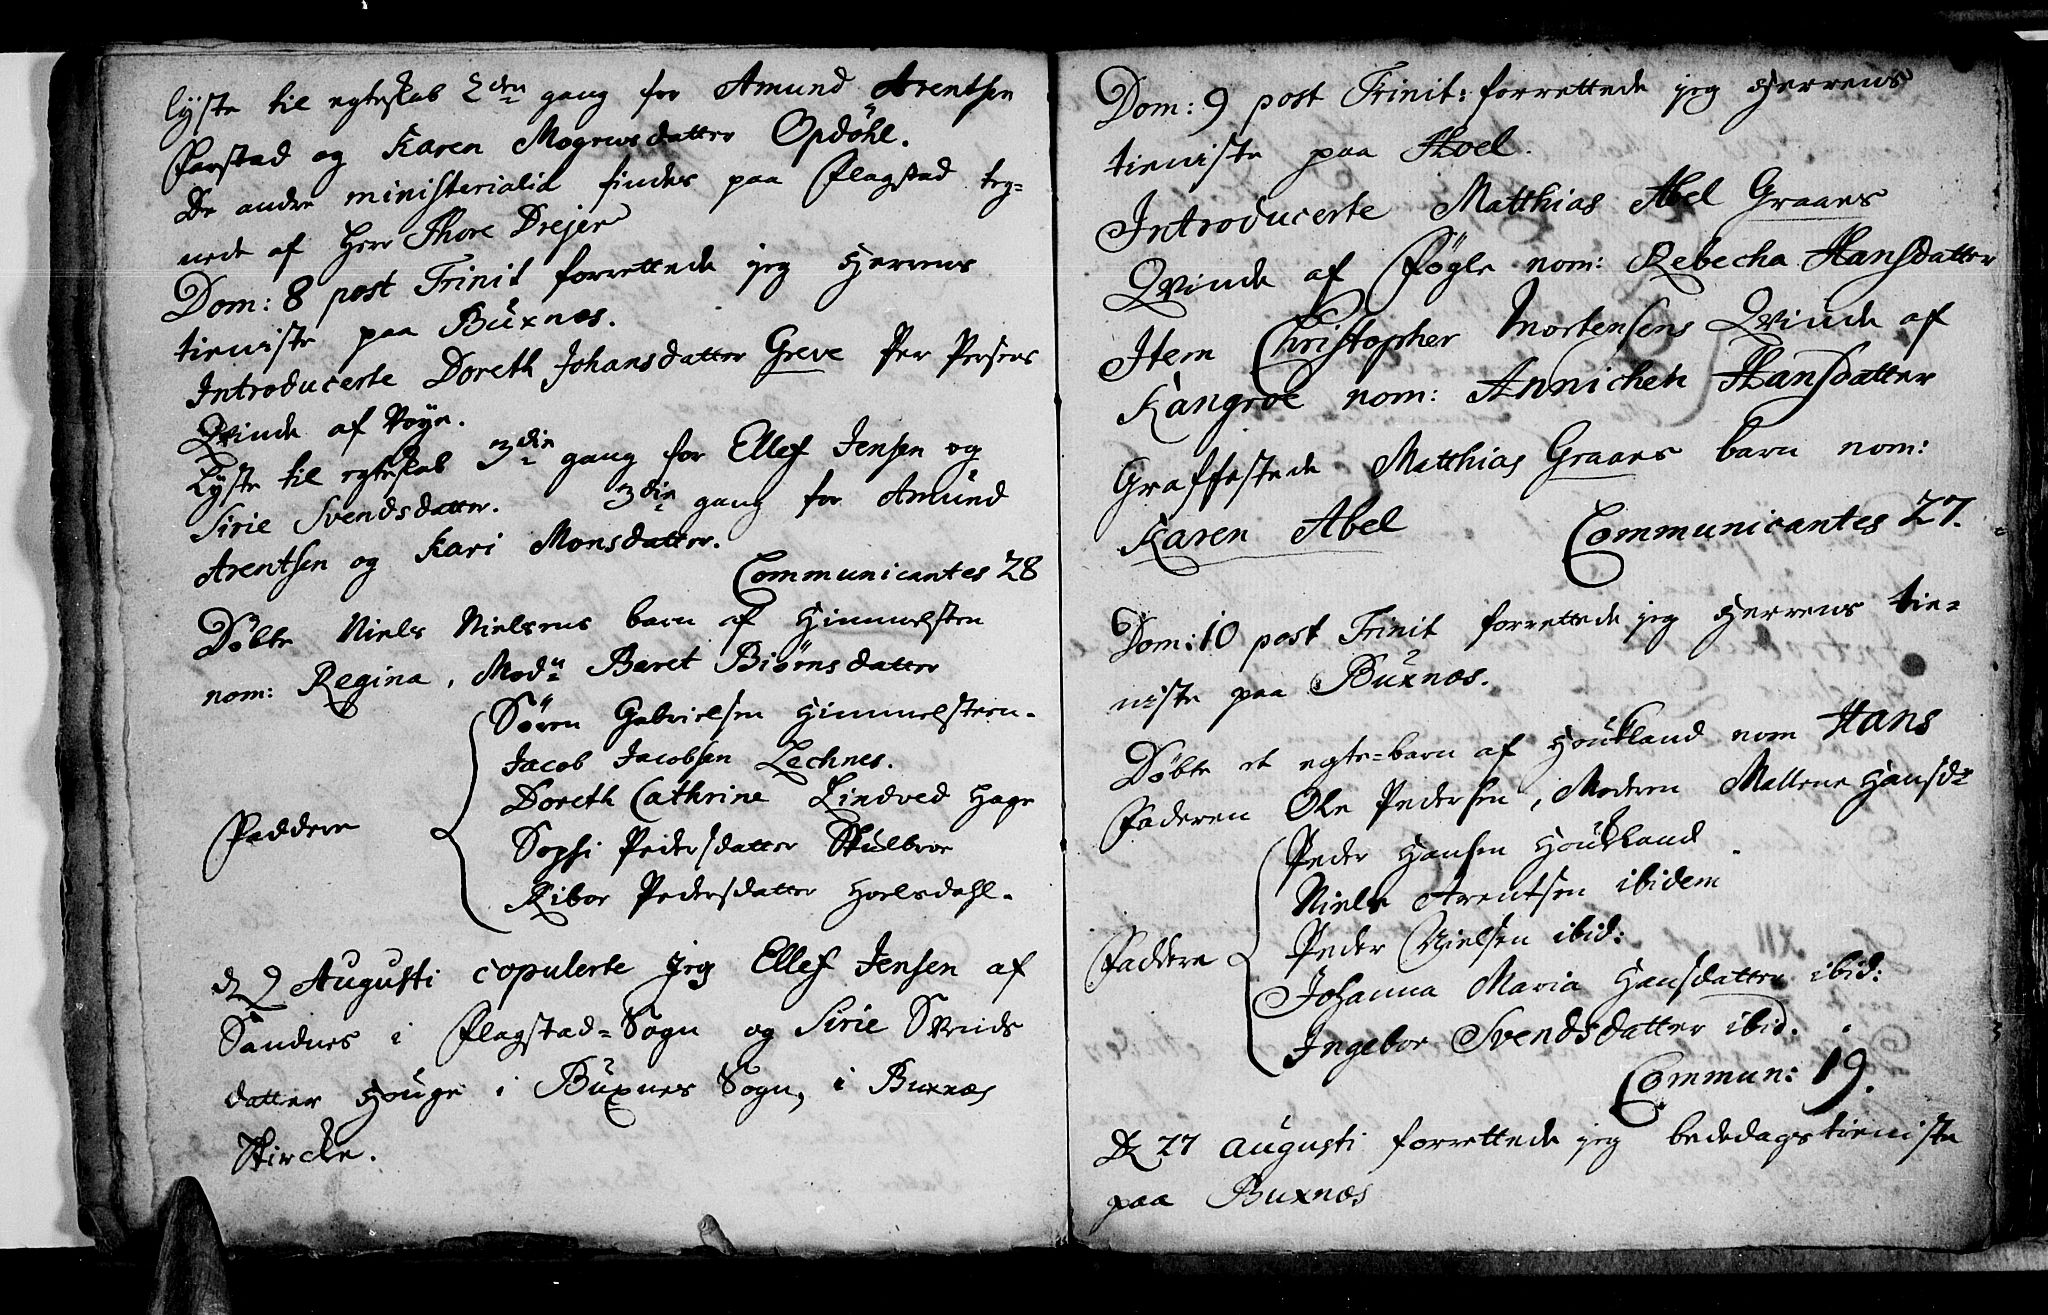 lyste til egteskab 2den gang for Amund Arentsen
Farstad og Karen Mogensdatter Opdöhl.
De andre ministerialia findes paa Flagstad teg=
nede af Herr Thore Drejer
Dom: 8 post Trinit forrettede jeg Herrens
tieniste paa Buxnæs.
Introducerte Doreth Johansdatter Greve Per Persens
Qvinde af Vøye.
Lyste til egteskab 3die gang for Ellef Jensen og
Sirie Svendsdatter. 3die gang for Amund
Arentsen og Kari Monsdatter.
Communicantes 28
Döbte Niels Nielsens barn af Himmelsten
nom: Regina, Modn Beret Biörnsdatter
Sören Gabrielsen Himmelsteen.
Jacob Jacobsen Lechnes.
Doreth Cathrine Lindved Hage
Faddere
Sophi Pedersdatter Skulbroe
Ribor Pedersdatter Hoelsdahl.
d 9 Augusti copulerte jeg Ellef Jensen af
Sandnes i Flagstad=Sogn og Sirie Svends
datter Houge i Buxnes Sogn, i Buxnæs
Kircke.
Dom: 9 post Trinit: forrettede jeg Herrens
tieniste paa Hoel.
Introducerte Matthias Abel Graaes
Qvinde af Fögle nom: Rebecha Hansdatter
Item Christopher Mortensens Qvinde af
Kangroe nom: Annichen Hansdatter
Graffestede Matthias Graaes barn nom:
Karen Abel Communicantes 27.
Dom: 10 post Trinit forrettede jeg Herrens tie=
niste paa Buxnæs.
Döbte et egte=barn af Houkland nom Hans
Faderen Ole Pedersen, Moderen Maltene Hansdr
Peder Hansen Houkland
Niels Arentsen ibidem
Faddere
Peder Nielsen ibid:
Johanna Maria Hansdatter ibid:
Ingebor Svendsdatter ibid.
Commun: 19.
D 27 Augusti forrettede jeg bededagstieniste
paa Buxnæs